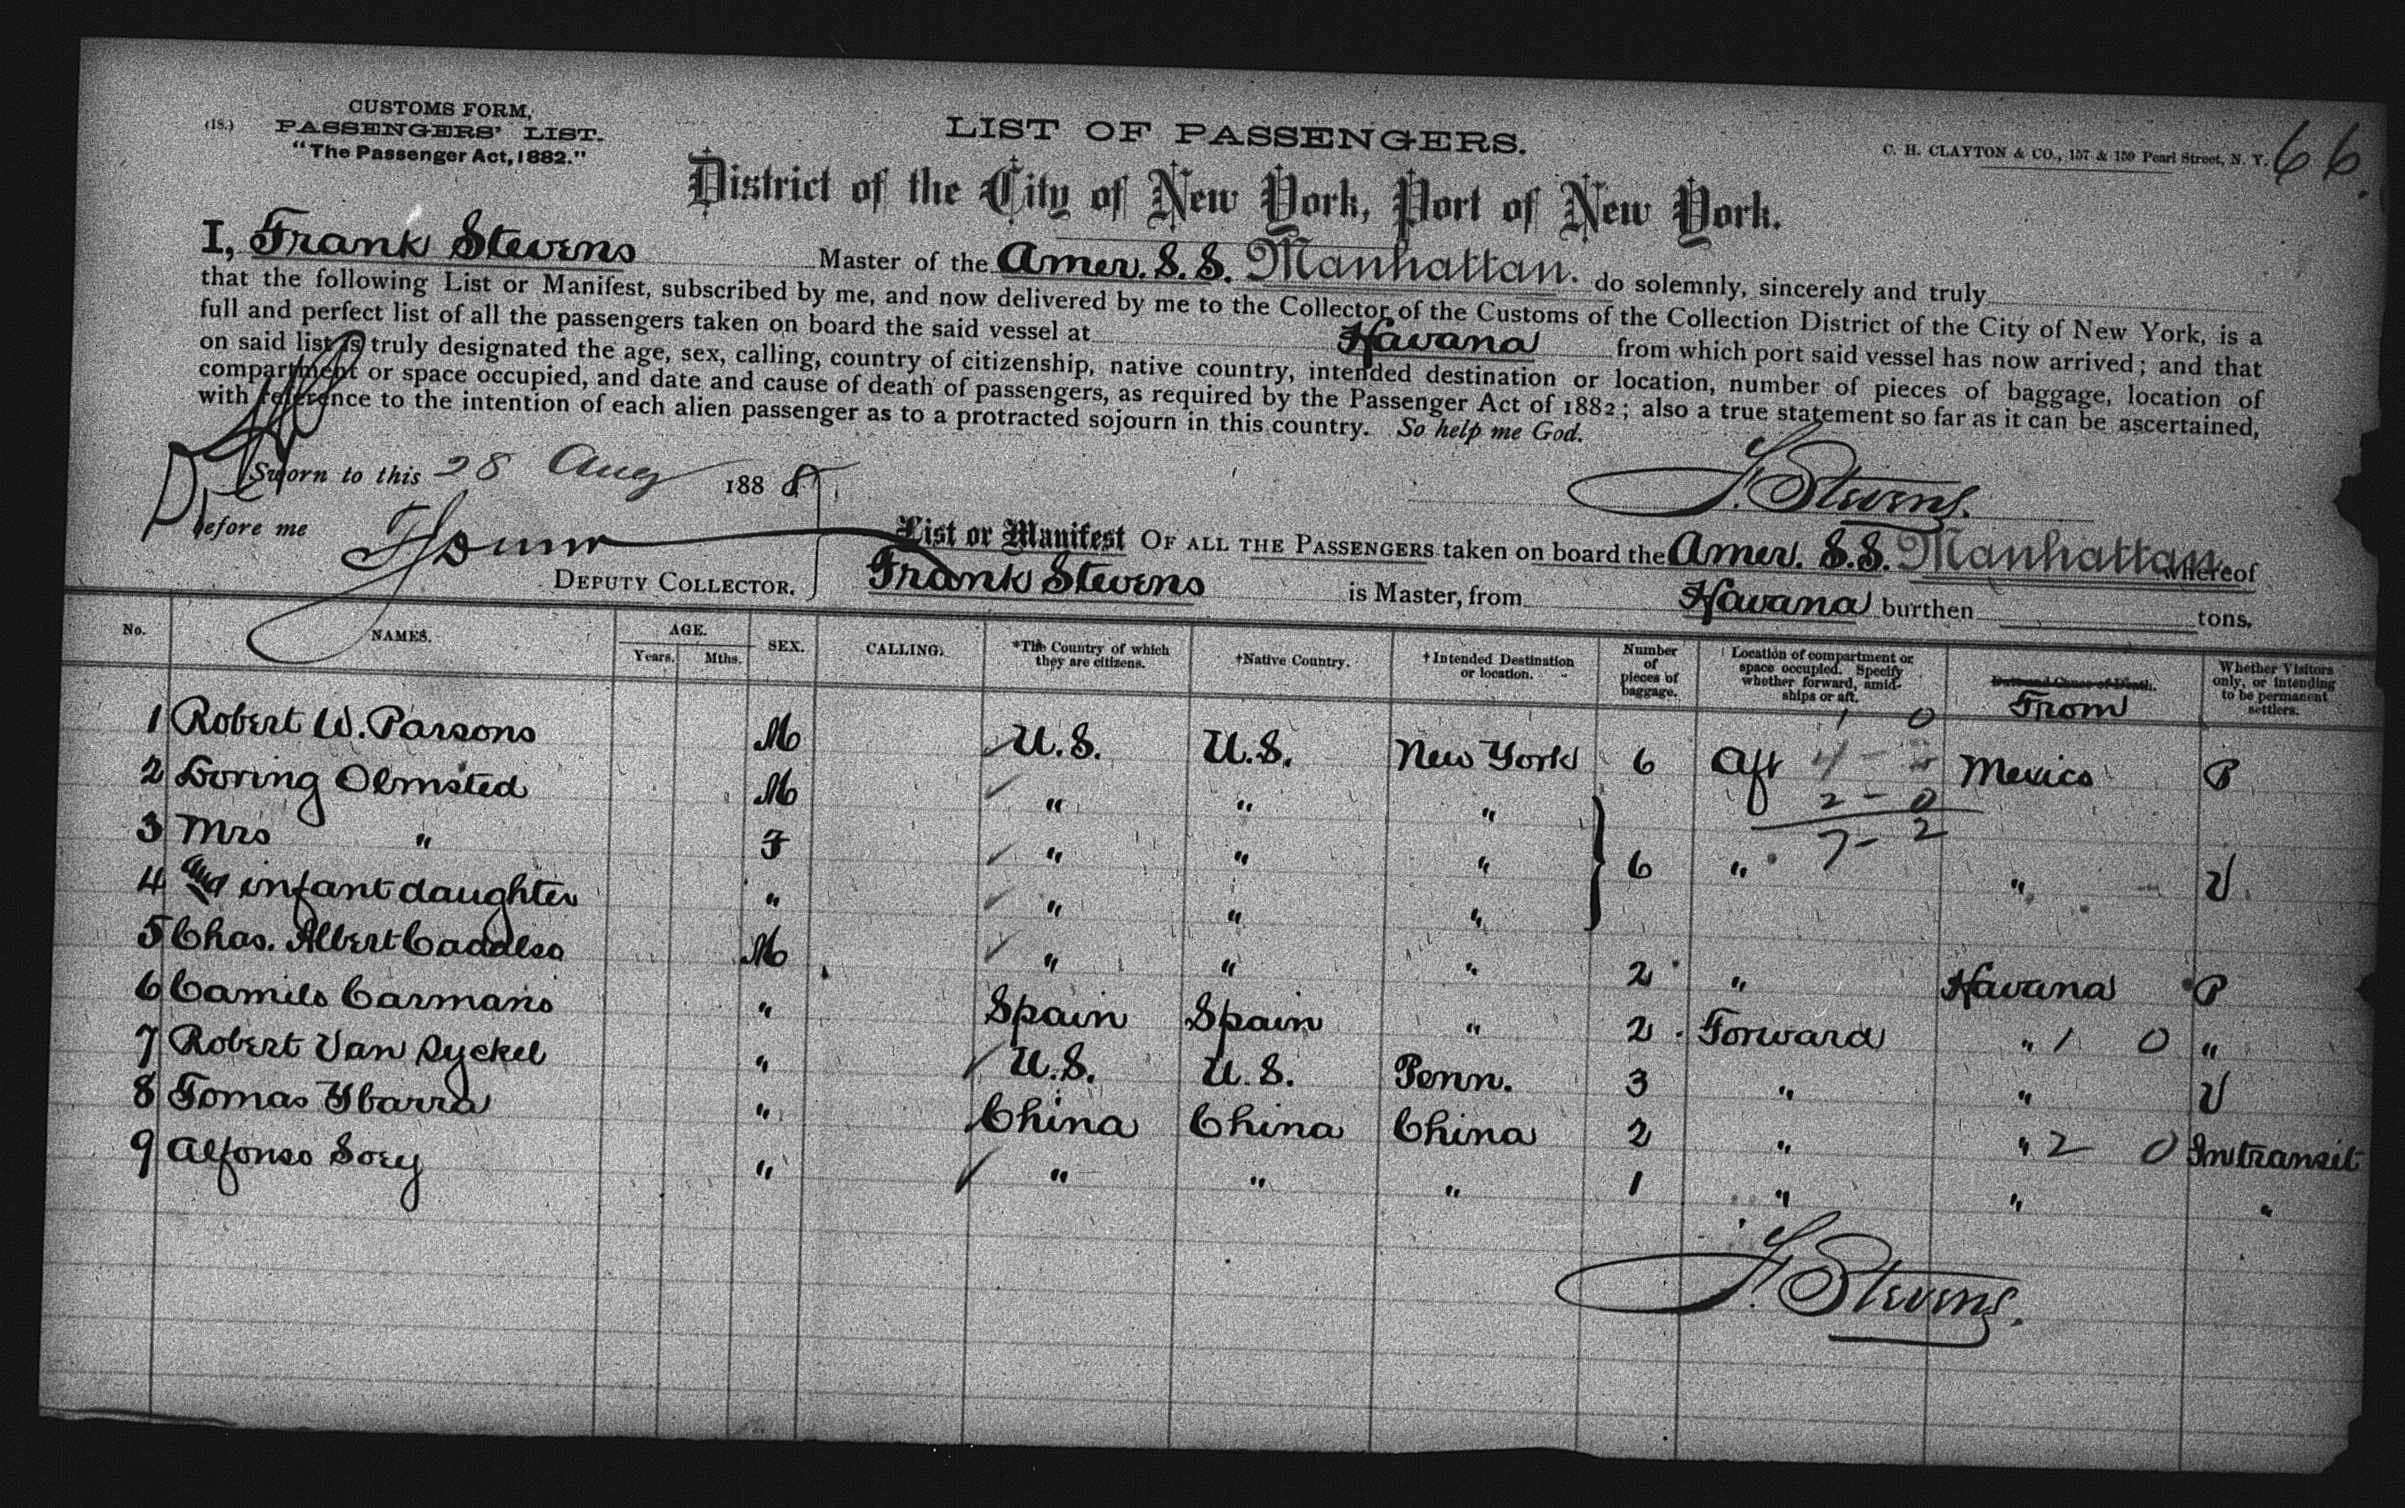 CUSTOMS FORM,
(18.) PASSENGERS' LIST.
"The Passenger Act, 1882."
LIST OF PASSENGERS.
C. H. CLAYTON & CO., 157 & 159 Pearl Street, N. Y.
66.
District of the City of New York, Port of New York.
I, Frank Stevens Master of the Amer. S. S. Manhattan. do solemnly, sincerely and truly
that the following List or Manifest, subscribed by me, and now delivered by me to the Collector of the Customs of the Collection District of the City of New York, is a
full and perfect list of all the passengers taken on board the said vessel at Havana from which port said vessel has now arrived; and that
on said list is truly designated the age, sex, calling, country of citizenship, native country, intended destination or location, number of pieces of baggage, location of
compartment or space occupied, and date and cause of death of passengers, as required by the Passenger Act of 1882; also a true statement so far as it can be ascertained,
with reference to the intention of each alien passenger as to a protracted sojourn in this country. So help me God.
Sworn to this 28 Aug 1888
F. Stevens.
Before me
DEPUTY COLLECTOR.
List or Manifest OF ALL THE PASSENGERS taken on board the Amer. S.S. Manhattan whereof
Frank Stevens is Master, from Havana burthen tons.
No. NAMES. AGE. Years. Mths. SEX. CALLING. *The Country of which they are citizens. †Native Country. †Intended Destination or location. Number of pieces of baggage. Location of compartment or space occupied. Specify whether forward, amidships or aft. Date and Cause of Death. From Whether Visitors only, or intending to be permanent settlers.
1 0
1 Robert W. Parsons M U.S. U.S. New York 6 Aft 4 - 2 Mexico P
2 Loring Olmsted M " " " 2 - 0
7 - 2
3 Mrs " F " " " 6 " " V
4 and infant daughter " " " "
5 Chas. Albert Cadalso M " " " 2 " Havana P
6 Camilo Carmano " Spain Spain " 2 Forward " 1 0 "
7 Robert Van Syckel " U.S. U.S. Penn. 3 " " V
8 Tomas Ybarra " China China China 2 " " 2 0 Intransit
9 Alfonso Soey " " " " 1 " " "
F. Stevens.